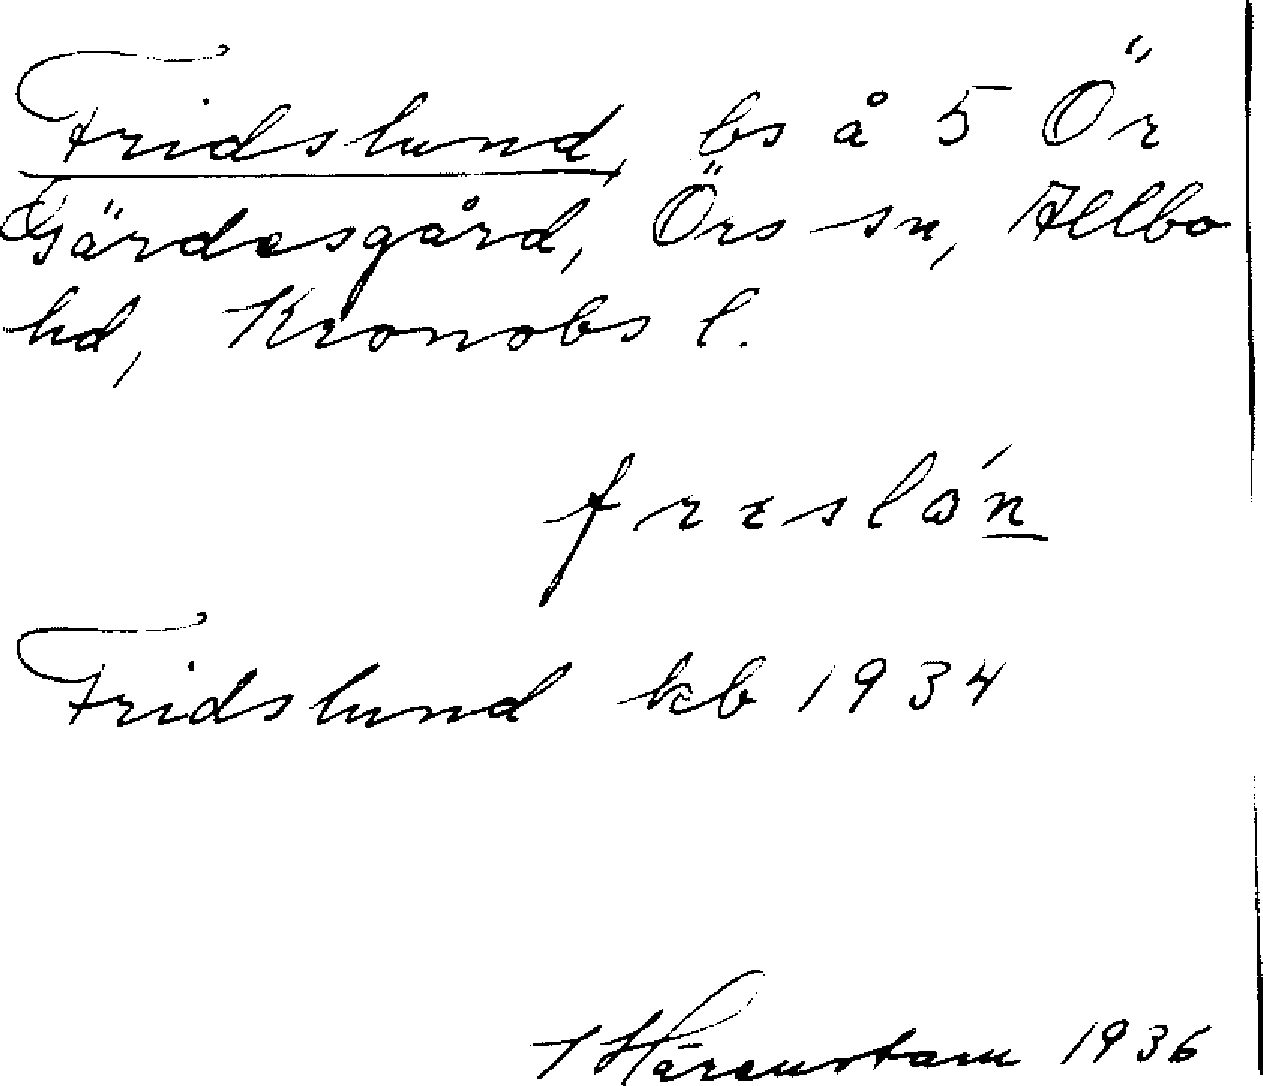 Fridslund, bs å 5 Ör
Gärdesgård, Örs sn, Allbo
hd, Kronobs l.
fresló́n
Fridslund kb 1934
Härenstam 1936